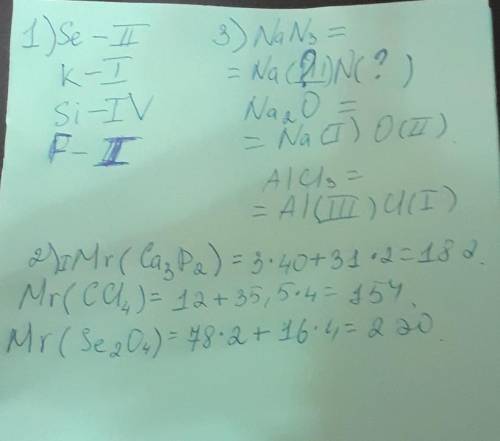 1) Se - II
K - I
Si - IV
F - II
3) NaN₃ =
= Na( )N(?)
Na₂O =
= Na(I) O(II)
AlCl₃ =
= Al(III)Cl(I)
2) Mr(Ca₃P₂) = 3·40+31·2=182.
Mr(CCl₄) = 12+35,5·4=154.
Mr(Se₂O₄)=78·2+16·4=220.